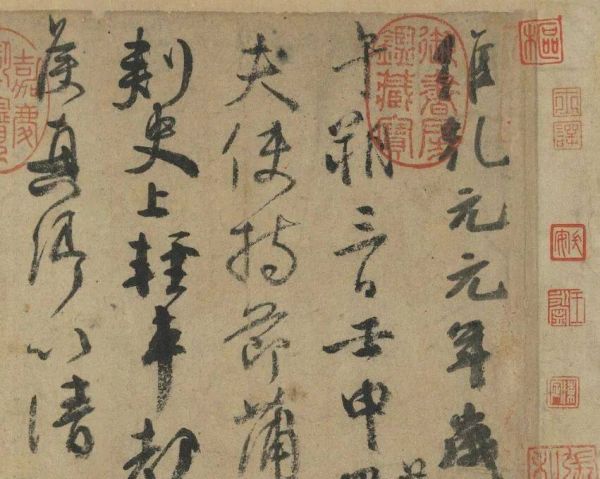 樞
御書房
鑑藏寶
維乾元元年歲
午朔三日壬申
夫使持節蒲
刺史上輕車都
侯真卿以清
嘉慶